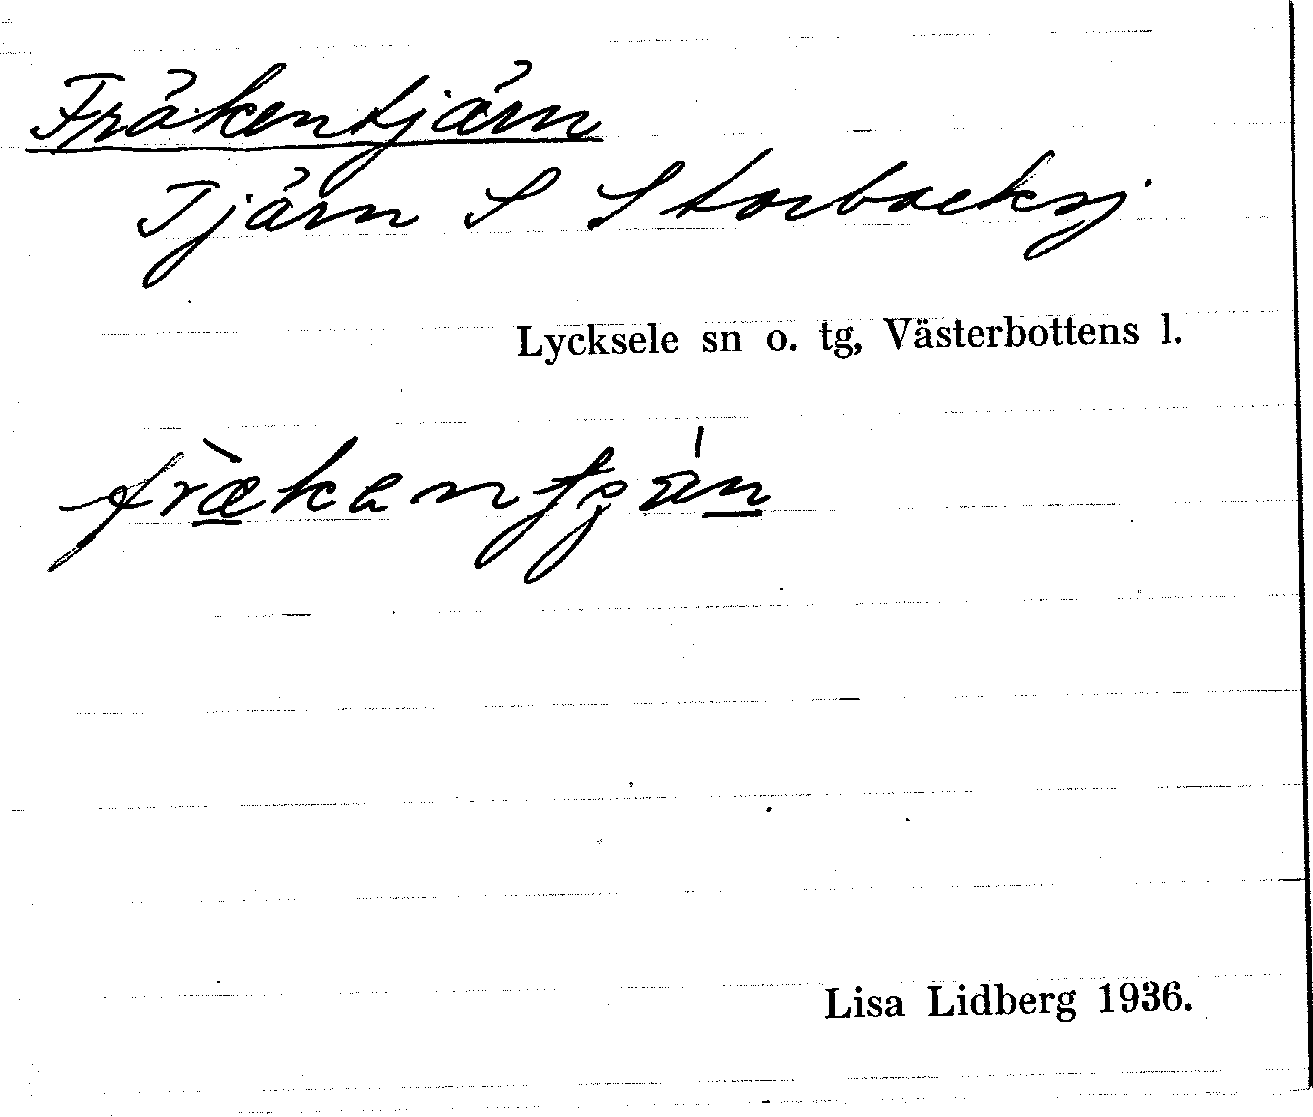 Fräkentjärn
Tjärn S Storbacksj
Lycksele sn o. tg, Västerbottens l.
Lisa Lidberg 1936.